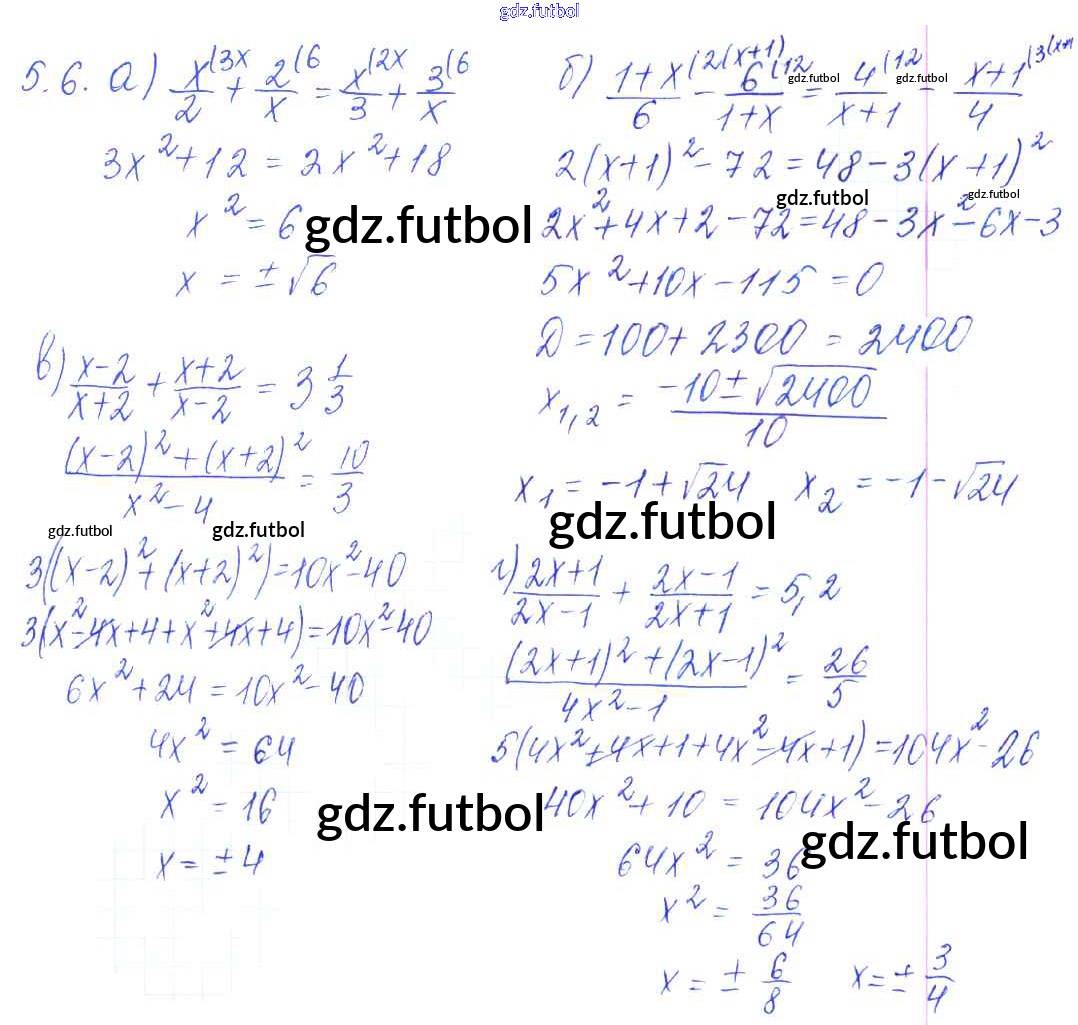 gdz.futbol
5.6. а) x/2 (3x + 2/x (6 = x/3 (2x + 3/x (6
3x² + 12 = 2x² + 18
x² = 6 gdz.futbol
x = ± √6
б) (1+x)/6 (2(x+1) − 6/(1+x) (12 gdz.futbol = 4/(x+1) (12 gdz.futbol − (x+1)/4 (3(x+1
2(x+1)² − 72 = 48 − 3(x+1)²
gdz.futbol gdz.futbol
2x² + 4x + 2 − 72 = 48 − 3x² − 6x − 3
5x² + 10x − 115 = 0
D = 100 + 2300 = 2400
x1,2 = (−10 ± √2400)/10
x1 = −1 + √24 x2 = −1 − √24
gdz.futbol
в) (x−2)/(x+2) + (x+2)/(x−2) = 3 1/3
((x−2)² + (x+2)²)/(x² − 4) = 10/3
gdz.futbol gdz.futbol
3((x−2)² + (x+2)²) = 10x² − 40
3(x² − 4x + 4 + x² + 4x + 4) = 10x² − 40
6x² + 24 = 10x² − 40
4x² = 64
x² = 16 gdz.futbol
x = ± 4
г) (2x+1)/(2x−1) + (2x−1)/(2x+1) = 5,2
((2x+1)² + (2x−1)²)/(4x² − 1) = 26/5
5(4x² + 4x + 1 + 4x² − 4x + 1) = 104x² − 26
40x² + 10 = 104x² − 26
64x² = 36 gdz.futbol
x² = 36/64
x = ± 6/8 x = ± 3/4